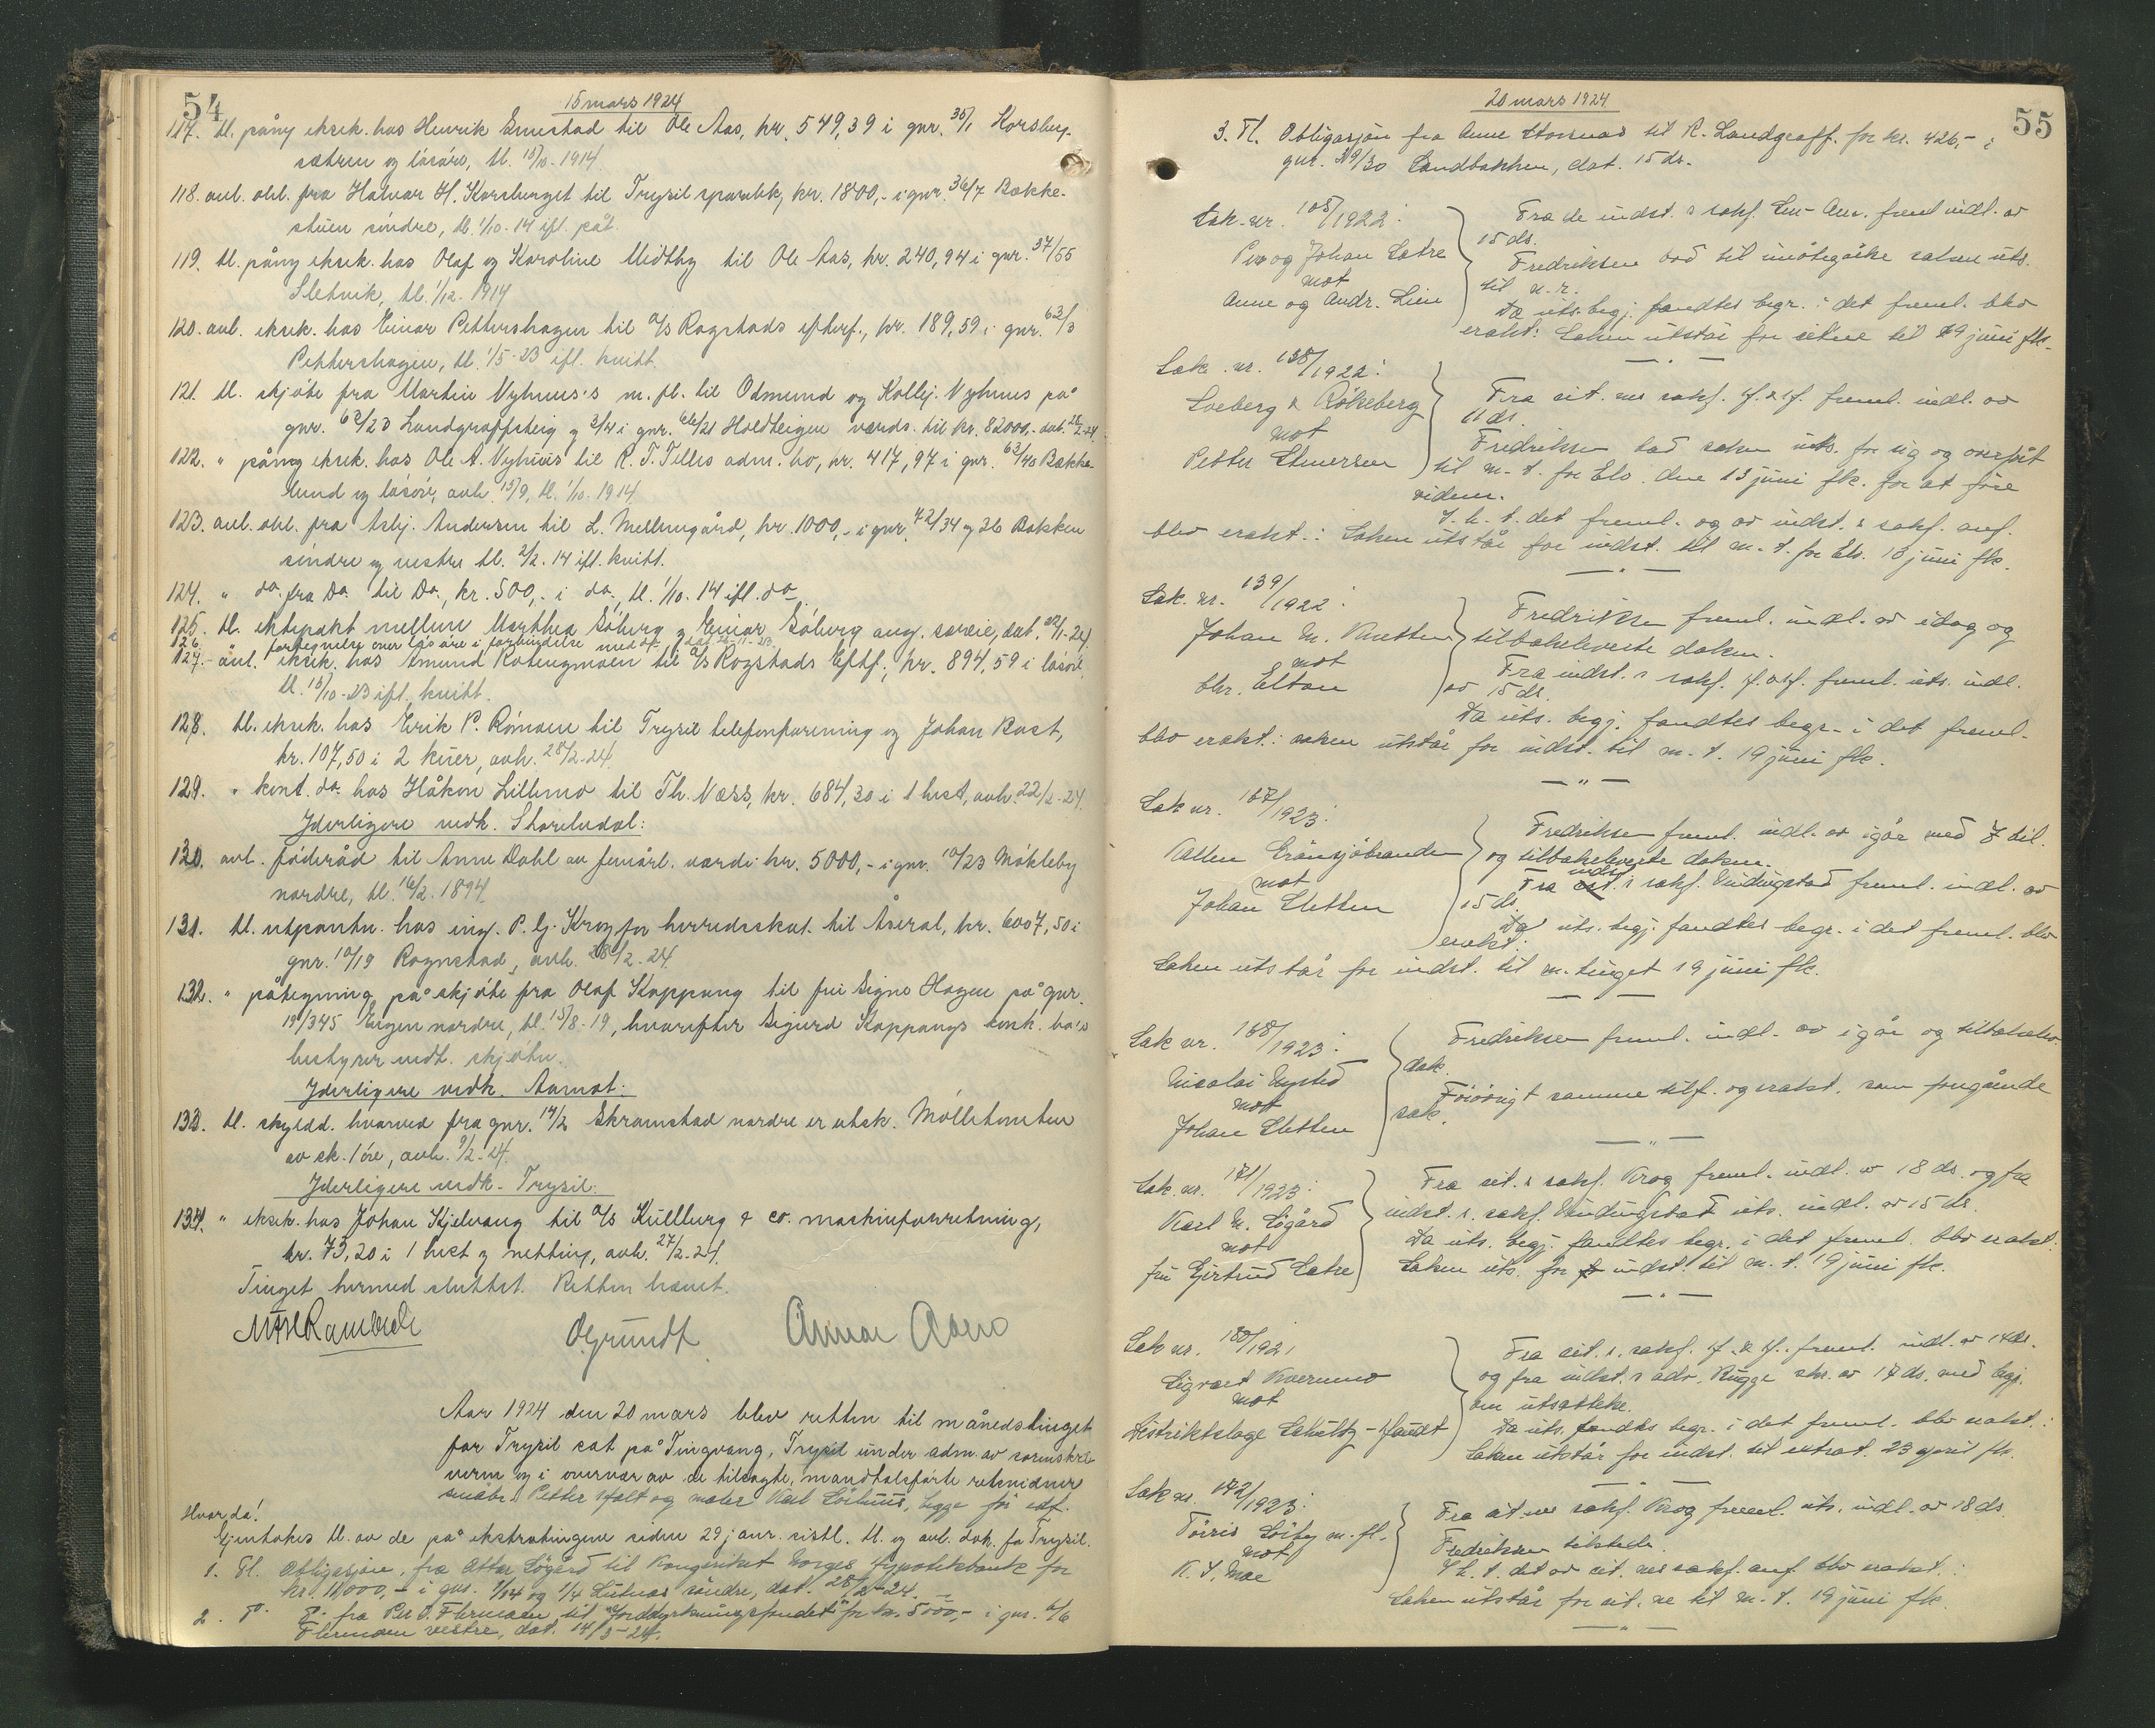 54
15 mars 1924
117. tl. påny eksek. hos Henrik Enerstad til Ole Aas, kr. 549,39 i gnr. 35/1 Korsberg-
sætren og løsøre, tl. 15/10-1914.
118. avl. obl. fra Halvar H. Korsberget til Trysil sparebk, kr. 1800,- i gnr. 36/7 Bække-
stuen søndre, tl. 1/10-14 ifl. påt.
119. tl. påny eksek. hos Olaf og Karoline Midthy til Ole Aas, kr. 240,94 i gnr. 37/55
Sletvik, tl. 1/12-1914
120. avl. eksek. hos Einar Pettershagen til A/S Rogstads efterf., kr. 189,59 i gnr. 62/3
Pettershagen, tl. 1/5-23 ifl. kvitt.
121. tl. skjøte fra Martin Nyhuus's m. fl. til Odmund og Kolbj. Nyhuus på
gnr. 62/23 Landgraffsteig og 3/4 i gnr. 66/21 Holdteigen værds. til kr. 82000,- dat. 28/2-24.
122. " påny eksek. hos Ole A. Nyhuus til R. T. Telles adm. bo, kr. 417,97 i gnr. 63/40 Bække-
lund og løsøre, avh. 15/9, tl. 1/10-1914
123. avl. obl. fra Asbj. Andersen til L. Mellemgård, kr. 1000,- i gnr. 42/34 og 26 Bakken
søndre og vestre tl. 2/2.14 ifl. kvitt.
124. " do fra Do til Do, kr. 500,- i do, tl. 1/10.14 ifl. do
125. tl. ektepakt mellem Marthea Søberg og Einar Søberg ang. særeie, dat. 22/1-24.
126. fortegnelse over løsøre i forbindelse med
127. avl. eksek. hos Amund Rotengmoen til A/S Rogstads Eftf., kr. 894,59 i løsøre,
tl. 15/10-23 ifl. kvitt.
128. tl. eksek. hos Erik P. Rømoen til Trysil telefonforening og Johan Bast,
kr. 107,50 i 2 kuer, avh. 28/2-24.
129. " kont. do hos Håkon Lillemo til Th. Næss, kr. 684,30 i 1 hest, avh. 22/2-24.
Yderligere vedk. Storelvdal:
130. avl. føderåd til Anne Dahl av femårl. værdi kr. 5000,- i gnr. 10/23 Møkleby
nordre, tl. 16/2.1894.
131. tl. utpantn. hos ing. P. G. Krog for herredsskat til Åseral, kr. 6007,50 i
gnr. 10/19 Rognstad, avh. 28/2-24.
132. " påtegning på skjøte fra Olaf Koppang til fru Signe Hagen på gnr.
19/345 Engen nordre, tl. 15/8-19, hvorefter Sigurd Koppangs konk. bo's
bestyrer vedt. skjøtn.
Yderligere vedk. Aamot:
133. tl. skyldd. hvorved fra gnr. 14/2 Skramstad nordre er utsk. Møllertomten
av sk. 1 øre, avh. 9/2-24.
Yderligere vedk. Trysil:
134. " eksek. hos Johan Kjelvang til A/S Kullberg & co. maskinforretning,
kr. 73,20 i 1 hest og netting, avh. 27/2-24.
Tinget hermed sluttet. Retten hævet.
O Grundt. Annar Aaeno
Aar 1924 den 20 mars blev retten til månedstinget
for Trysil sat på Tingvang, Trysil under adm. av sorenskri-
veren og i overvær av de tilsagte, mandtalsførte retsvidner
snekr. Petter Holt og maler Karl Løvhuus, begge før edf.
Hvor da!
Gjentokes tl. av de på ekstratingene siden 29 janr. sistl. tl. og avl. dok. fo Trysil.
1. Tl. obligasjon, fra Ottar Løgård til Kongeriket Norges Hypotekbank for
kr. 11000,- i gnr. 1/14 og 1/4 Lutnæs søndre, dat. 28/2-24. -
2. T. D. fra Per O. Flermoen til "Jorddyrkningsfondet" for kr. 5000,- i gnr. 6/6
Flermoen vestre, dat. 14/3-24.
55
20 mars 1924
3. Tl. Obligasjon fra Anne Storsnæs til R. Landgraff. for kr. 426,- i
gnr. 29/30 Sandbakken, dat. 15 ds.
Sak. nr. 108/1922:
Per og Johan Sætre
mot
Anne og Andr. Lien
Fra de indst. s sakf. Lie-Aur. freml. indl. av
15 ds.
Fredriksen bad til imøtegåelse saken uts.
til n. r.
Da uts. begj. fandtes begr. i det freml. blev
erakt: Saken utstår for sitne til 19 juni flk.
Sak. nr. 138/1922:
Loeberg & Røkeberg
mot
Petter Stenersen
Fra cit. nes sakf. f. & sf. freml. indl. av
11 ds.
Fredriksen bad saken uts. for sig og overført
til m. t. for Elv. den 13 juni flk. for at føre
vidner.
I. h. t. det freml. og av indst. s sakf. anf.
blev erakt.: Saken utstår for indst. til m. t. for Elv. 13 juni flk.
Sak. nr. 139/1922:
Johan M. Knetten
mot
bkr. Eltan
Fredriksen freml. indl. av idag og
tilbakeleverte doken.
Fra indst. s sakf. f. & sf. freml. uts. indl.
av 15 ds.
Da uts. begj. fandtes begr. i det freml.
blev erakt: saken utstår for indst. til m. t. 19 juni flk.
Sak nr. 167/1923:
Kallen Grånsjøbranden
mot
Johan Sletten
Fredriksen freml. indl. av igår med 7 bil.
og tilbakeleverte doken.
Fra indst. s sakf. Vindingstad freml. indl. av
15 ds.
Da uts. begj. fandtes begr. i det freml. blev
erakt:
Saken utstår for indst. til m. tinget 19 juni flk.
Sak nr. 168/1923:
Nicolai Nysted
mot
Johan Sletten
Fredriksen freml. indl. av igår og tilbakelev.
dok.
Føvrigt samme tilf. og erakt. som foregående
sak.
Sak. nr. 171/1923:
Karl M. Løgård
mot
fru Gjertrud Sætre
Fra cit. s sakf. Krog freml. indl. av 18 ds. og fra
indst. s. sakf. Vindingstad uts. indl. av 15 ds.
Da uts. begj. fandtes begr. i det freml. blev erakt:
Saken uts. for indst. til m. t. 19 juni flk.
Sak nr. 180/1921
Sigvart Kvernmo
mot
Distriktslæge Schultz-Haudt
Fra cit. s. sakf. f. & sf. freml. indl. av 14 ds.
og fra indst. s adv. Rugge skr. av 17 ds. med begj.
om utsættelse.
Da uts. fandtes begr. i det freml. blev erakt.:
Saken utstår for indst. til extrat. 23 april flk.
Sak nr. 172/1923:
Tørris Løvby m. fl.
mot
K. T. Moe
Fra cit. nes sakf. Krog freml. uts. indl. av 18 ds.
Fredriksen tilstede.
I h. t. det av cit. nes sakf. anf. blev erakt.:
Saken utstår for cit. ne til m. t. 19 juni flk.